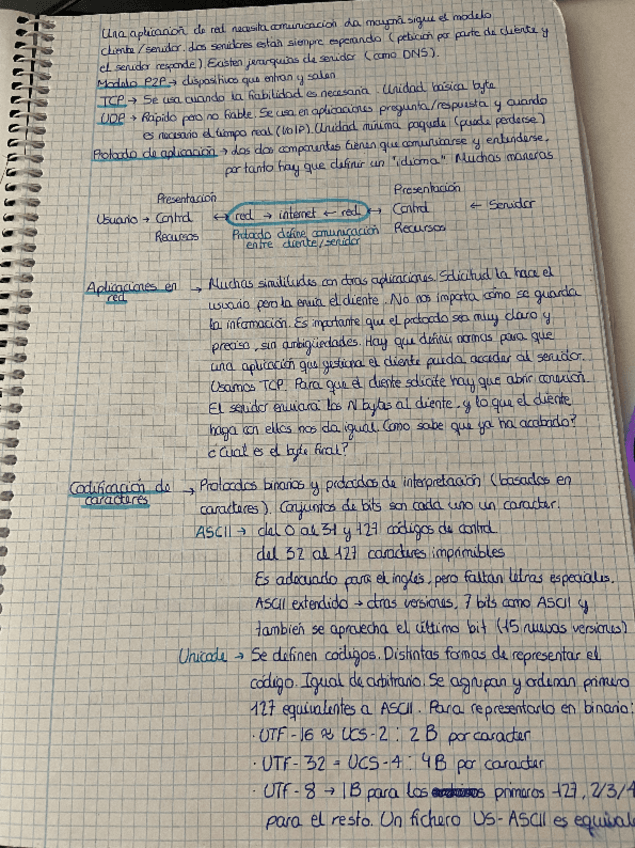 Una aplicación de red necesita comunicación. La mayoría sigue el modelo
cliente/servidor. Los servidores están siempre esperando (petición por parte de cliente y
el servidor responde) Existen jerarquías de servidor (como DNS).
Modelo P2P → dispositivos que entran y salen
TCP → Se usa cuando la fiabilidad es necesaria. Unidad básica byte
UDP → Rápido pero no fiable. Se usa en aplicaciones pregunta/respuesta y cuando
es necesario el tiempo real (VoIP). Unidad mínima paquete (puede perderse)
Protocolo de aplicación → los dos componentes tienen que comunicarse y entenderse,
por tanto hay que definir un "idioma" Muchas maneras
Presentación Presentación
Usuario → Control ↔ red → internet ← red ↔ Control ← Servidor
Recursos Protocolo define comunicación Recursos
entre cliente/servidor
Aplicaciones en → Muchas similitudes con otras aplicaciones. Solicitud la hace el
red usuario pero la envía el cliente. No nos importa cómo se guarda
la información. Es importante que el protocolo sea muy claro y
preciso, sin ambigüedades. Hay que definir normas para que
una aplicación que gestiona el cliente pueda acceder al servidor.
Usamos TCP. Para que el cliente solicite hay que abrir conexión.
El servidor enviará los N bytes al cliente, y lo que el cliente
haga con ellos nos da igual. Como sabe que ya ha acabado?
¿Cuál es el byte final?
Codificación de → Protocolos binarios y protocolos de interpretación (basados en
caracteres caracteres). Conjuntos de bits son cada uno un caracter.
ASCII → del 0 al 31 y 127 códigos de control
del 32 al 127 caracteres imprimibles
Es adecuado para el inglés, pero faltan letras especiales.
ASCII extendido → otras versiones, 7 bits como ASCII y
también se aprovecha el último bit (15 nuevas versiones)
Unicode → Se definen códigos. Distintas formas de representar el
código. Igual de arbitrario. Se agrupan y ordenan primero
127 equivalentes a ASCII. Para representarlo en binario:
· UTF-16 ≈ UCS-2: 2B por caracter
· UTF-32 = UCS-4: 4B por caracter
· UTF-8 → 1B para los primeros 127, 2/3/4
para el resto. Un fichero US-ASCII es equival